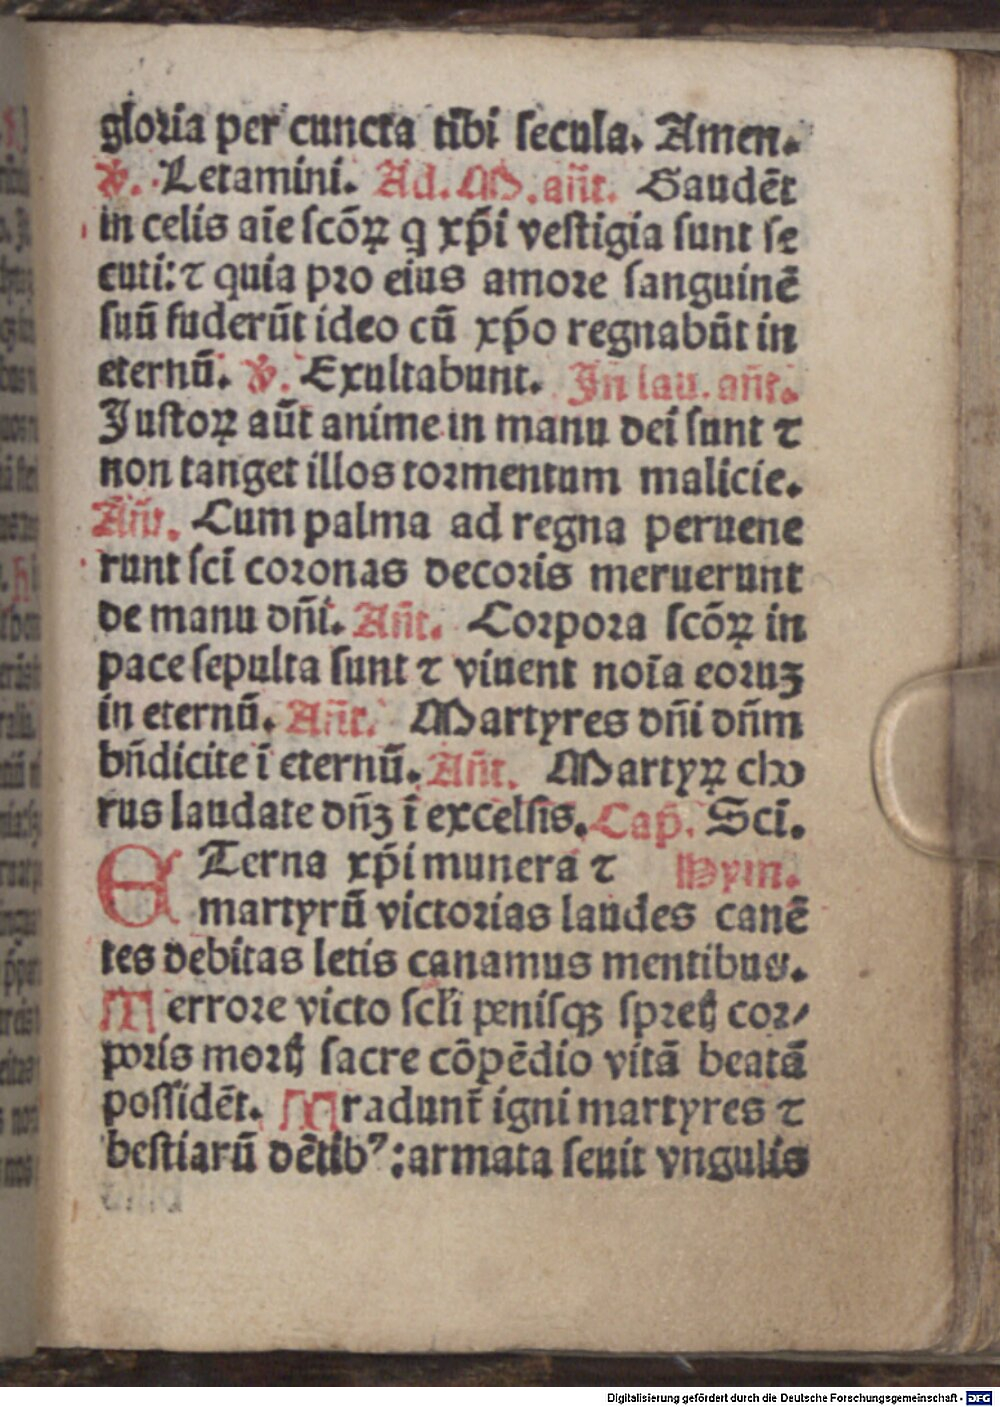 gloria per cuncta tibi secula. Amen.
℣. Letamini. Ad. M. añt. Gaudēt
in celis aīe scõꝝ q xp̄i vestigia sunt se
cuti: ⁊ quia pro eius amore sanguinē
suū fuderūt ideo cū xp̄o regnabūt in
eternū. ℣. Exultabunt. In lau. añt.
Justoꝝ aūt anime in manu dei sunt ⁊
non tanget illos tormentum malicie.
Añt. Cum palma ad regna peruene
runt scī coronas decoris meruerunt
de manu dñi. Añt. Corpora scõꝝ in
pace sepulta sunt ⁊ viuent noīa eoruꝫ
in eternū. Añt. Martyres dñi dñm
bñdicite ī eternū. Añt. Martyꝝ cho
rus laudate dñꝫ ī excelsis. Cap̄. Scī.
ETerna xp̄i munera ⁊ Hym.
martyrū victorias laudes canē
tes debitas letis canamus mentibus.
Terrore victo scłi penisqꝫ spretꝭ cor⸗
poris mortꝭ sacre cōpēdio vitā beatā
possidēt. Tradunt̄ igni martyres ⁊
bestiarū dētibꝰ: armata seuit vngulis
Digitalisierung gefördert durch die Deutsche Forschungsgemeinschaft - DFG